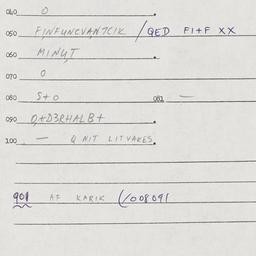 040 0.
050 FINFUNCVANTCIK / QED FI+F XX
060 MINUT.
070 0
080 S+0 081 —
090 0,+D3RHALB+
100 — Q NIT LITVAKES.
901 AF KARIK (/008091